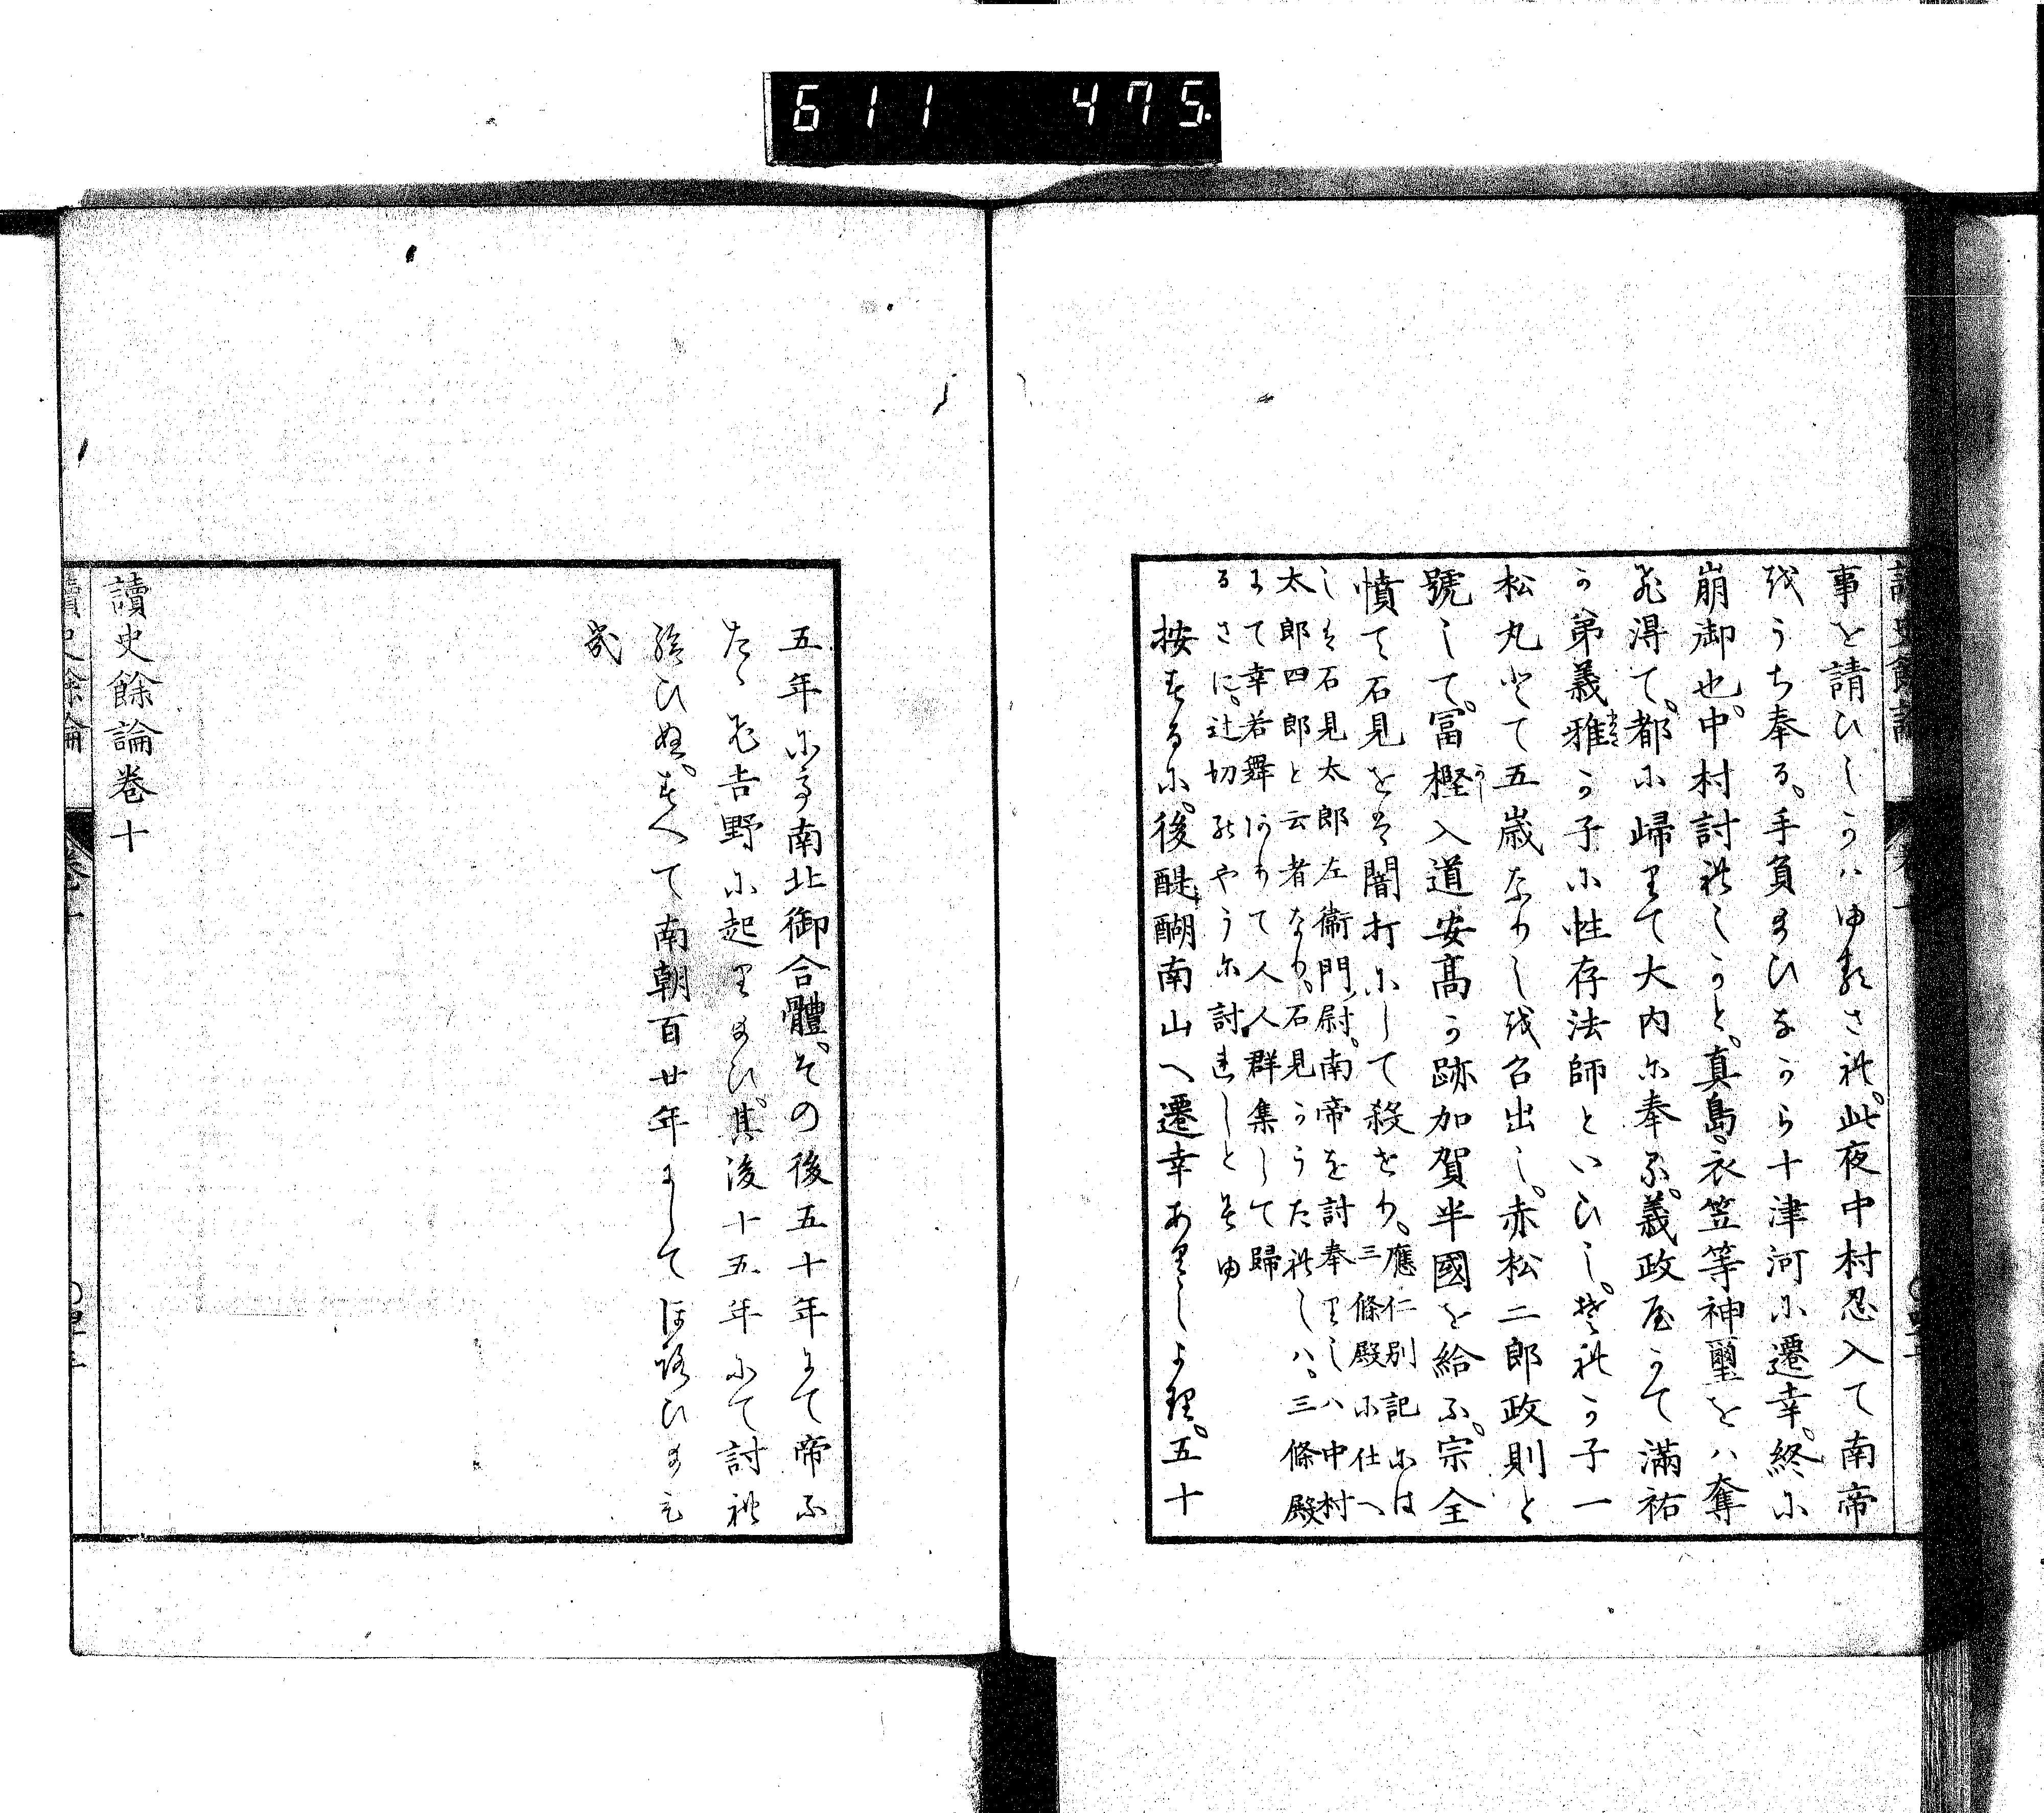 611 475
事を請ひしかハゆるされ。此夜中村忍入て南帝
をうち奉る。手負給ひなから十津河に遷幸。終に
崩御也。中村討れしかと。真島衣笠等神璽をハ奪
え得て。都に帰りて大内に奉る。義政屋かて滿祐
か弟義雅か子に性存法師といひし。それか子一
松丸とて五歳なりしを召出し。赤松二郎政則と
號して。冨樫入道安髙か跡加賀半國を給ふ。宗全
憤て石見をは闇打にして殺せり。應仁別記には三條殿に仕へ
しは石見太郎左衞門尉。南帝を討奉りしハ中村
太郎四郎と云者なり。石見かうたれしハ。三條殿
にて幸若舞ありて人人群集して歸
るさに。辻切のやうに討れしと見ゆ
按するに。後醍醐南山へ遷幸ありしより。五十
五年にして南北御合體。その後五十年にて帝ふ
たゝひ吉野に起り給ひ。其後十五年にて討れ
給ひぬ。すへて南朝百廿年にしてほろひ給ひ
き
讀史餘論卷十